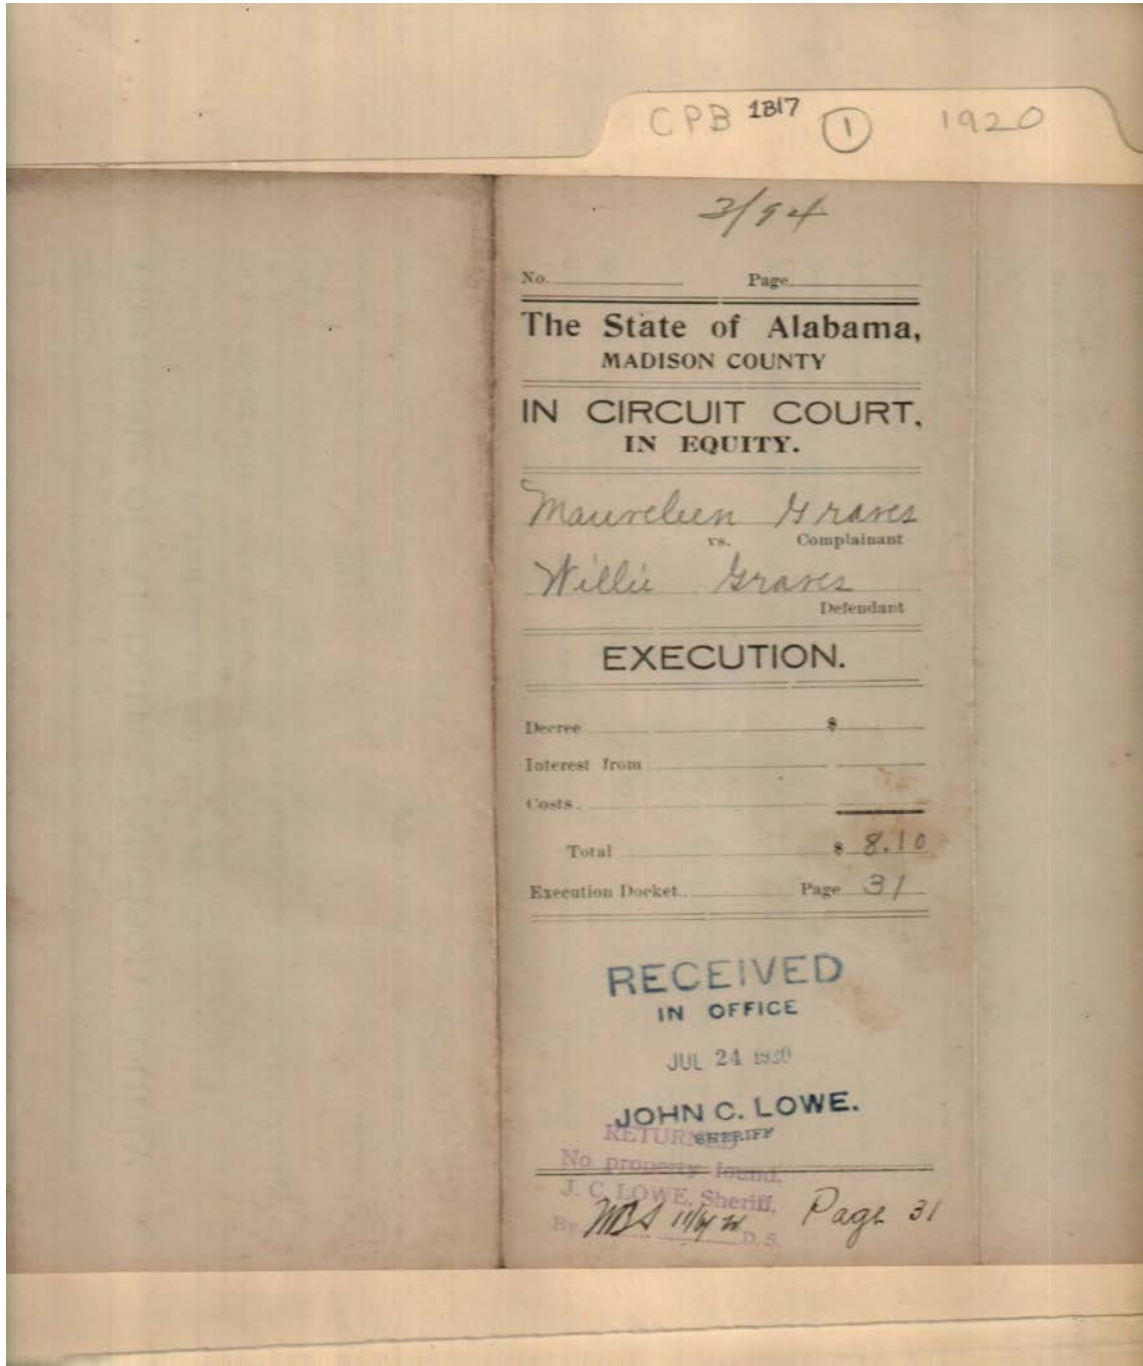 CPB 1B17 1 1920
3/94
No. Page
The State of Alabama,
MADISON COUNTY
IN CIRCUIT COURT,
IN EQUITY.
Maurelien Graves
vs. Complainant
Willie Graves
Defendant
EXECUTION.
Decree $
Interest from
Costs
Total $ 8.10
Execution Docket Page 31
RECEIVED
IN OFFICE
JUL 24 1920
JOHN C. LOWE.
SHERIFF
RETURNED
No property found.
J. C. LOWE, Sheriff,
By D. S.
Page 31